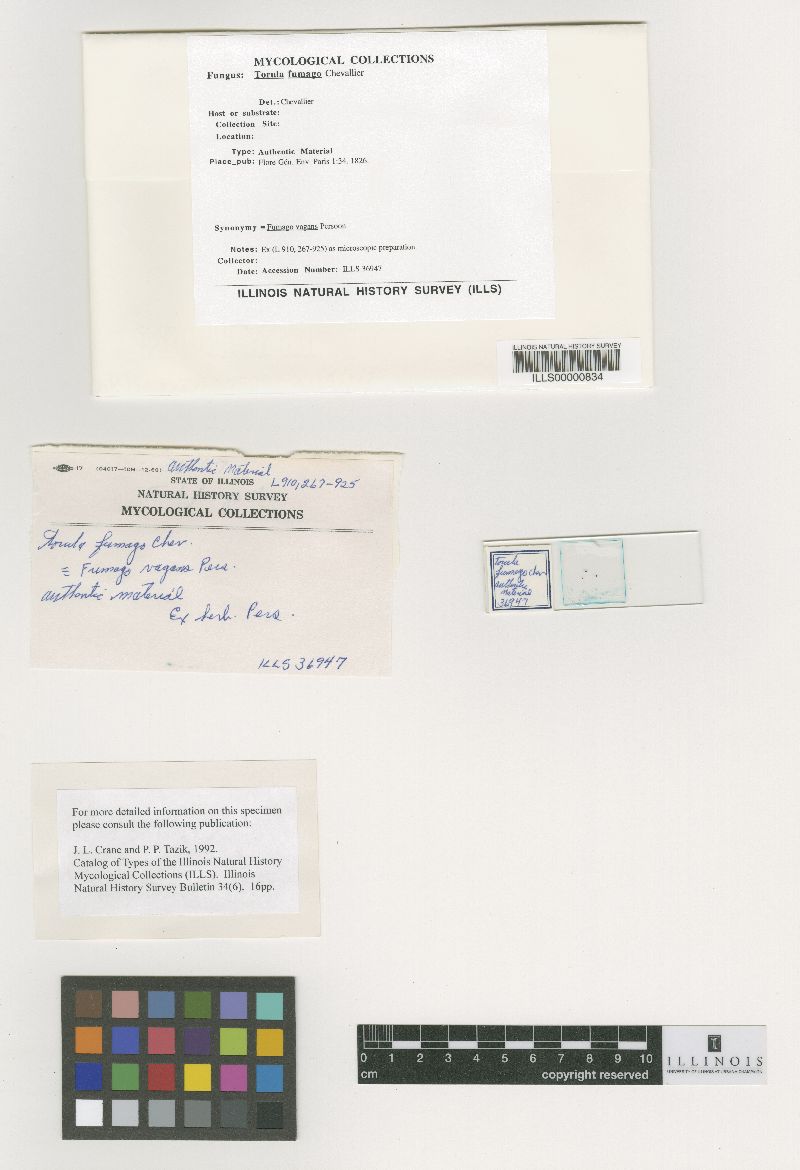 MYCOLOGICAL COLLECTIONS
Fungus: Torula fumago Chevallier
Det.: Chevallier
Host or substrate:
Collection Site:
Location:
Type: Authentic Material
Place_pub: Flore Gén. Env. Paris 1:34, 1826.
Synonymy = Fumago vagans Persoon
Notes: Ex (L 910, 267-925) as microscopic preparation
Collector:
Date: Accession Number: ILLS 36947
ILLINOIS NATURAL HISTORY SURVEY (ILLS)
ILLINOIS NATURAL HISTORY SURVEY
ILLS00000834
17 (64017—10M—12-60) authentic Material
STATE OF ILLINOIS L910,267-925
NATURAL HISTORY SURVEY
MYCOLOGICAL COLLECTIONS
Torula fumago Chev.
= Fumago vagans Pers.
authentic material
Ex herb. Pers.
ILLS 36947
Torula
fumago Chev
authentic
material
36947
For more detailed information on this specimen
please consult the following publication:
J. L. Crane and P. P. Tazik, 1992.
Catalog of Types of the Illinois Natural History
Mycological Collections (ILLS). Illinois
Natural History Survey Bulletin 34(6). 16pp.
0 1 2 3 4 5 6 7 8 9 10
cm copyright reserved
I
ILLINOIS
UNIVERSITY OF ILLINOIS AT URBANA-CHAMPAIGN